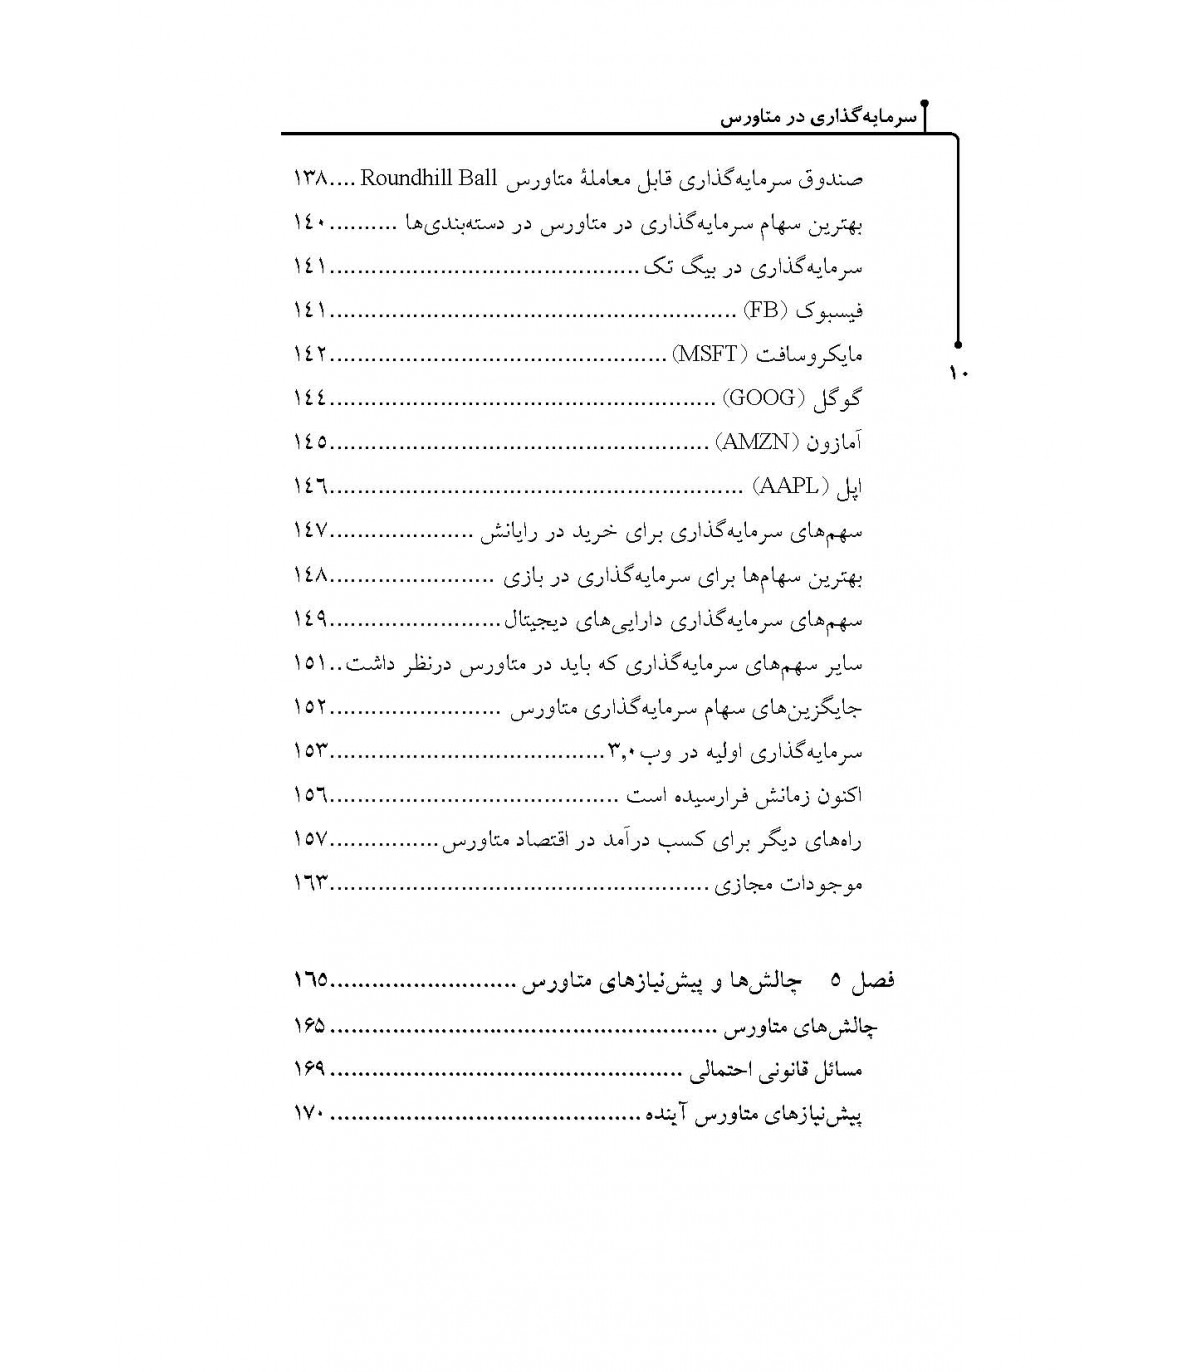 سرمایه‌گذاری در متاورس
صندوق سرمایه‌گذاری قابل معاملهٔ متاورس Roundhill Ball ....١٣٨
بهترین سهام سرمایه‌گذاری در متاورس در دسته‌بندی‌ها ..........١٤٠
سرمایه‌گذاری در بیگ تک.............................................١٤١
فیسبوک (FB) ...........................................................١٤١
مایکروسافت (MSFT) .................................................١٤٢
۱۰
گوگل (GOOG) ........................................................١٤٤
آمازون (AMZN) .......................................................١٤٥
اپل (AAPL) ............................................................١٤٦
سهم‌های سرمایه‌گذاری برای خرید در رایانش .....................١٤٧
بهترین سهام‌ها برای سرمایه‌گذاری در بازی ........................١٤٨
سهم‌های سرمایه‌گذاری دارایی‌های دیجیتال.........................١٤٩
سایر سهم‌های سرمایه‌گذاری که باید در متاورس درنظر داشت..١٥١
جایگزین‌های سهام سرمایه‌گذاری متاورس .........................١٥٢
سرمایه‌گذاری اولیه در وب ۳,۰........................................١٥٣
اکنون زمانش فرارسیده است ..........................................١٥٦
راه‌های دیگر برای کسب درآمد در اقتصاد متاورس................١٥٧
موجودات مجازی .......................................................١٦٣
فصل ٥ چالش‌ها و پیش‌نیازهای متاورس ...........................١٦٥
چالش‌های متاورس ........................................................ ۱۶۵
مسائل قانونی احتمالی ................................................... ۱۶۹
پیش‌نیازهای متاورس آینده ............................................. ۱۷۰